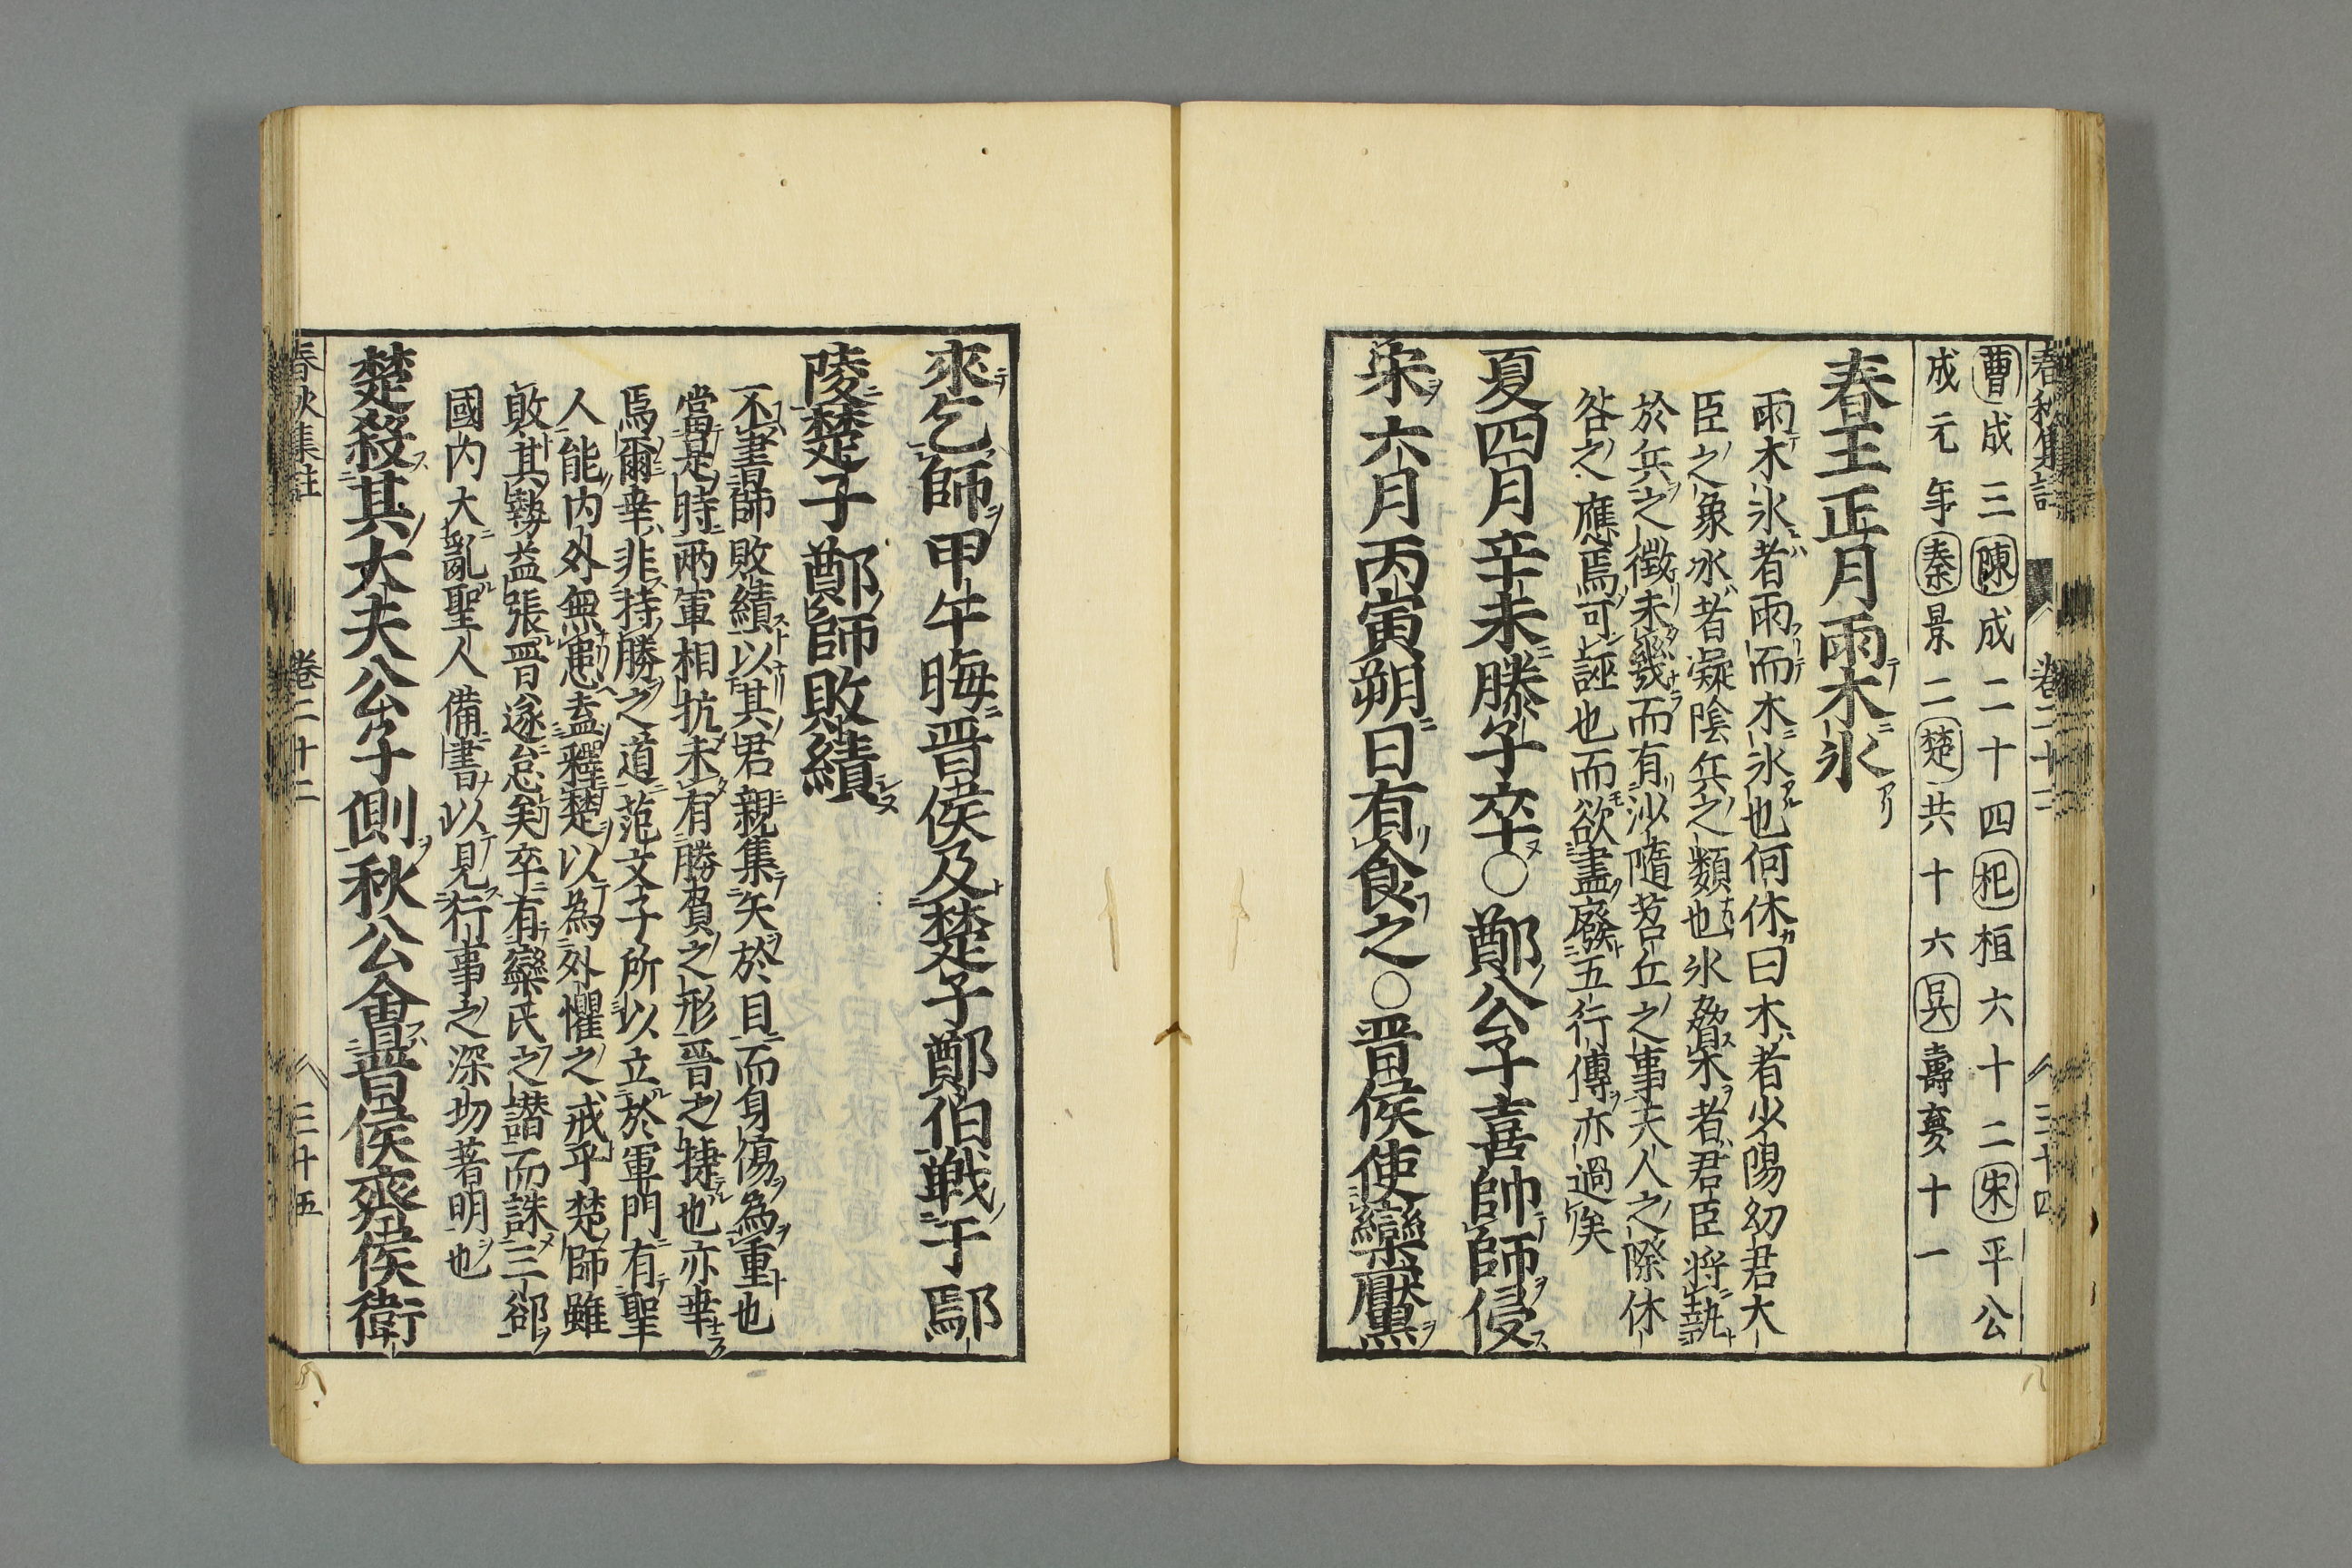 春秋集註 卷二十二 三十四
曹成三陳成二十四杞桓六十二宋平公
成元年秦景二楚共十六吳壽夢十一
春王正月雨木氷
雨木氷者雨而木氷也何休曰木者少陽幼君大
臣之象氷者凝陰兵之類也氷脅木者君臣將執
於兵之徵未幾而有沙隨苕丘之事天人之際休
咎之應焉可誣也而欲盡廢五行傳亦過矣
夏四月辛未滕子卒○鄭公子喜帥師侵
宋六月丙寅朔日有食之○晉侯使欒黶
來乞師甲午晦晉侯及楚子鄭伯戰于鄢
陵楚子鄭師敗績
不書師敗績以其君親集矢於目而身傷為重也
當是時兩軍相抗未有勝負之形晉之捷也亦幸
焉爾幸非持勝之道范文子所以立於軍門有聖
人能內外無患盍釋楚以為外懼之戒乎楚師雖
敗其勢益張晉遂怠矣卒有欒氏之譖而誅三郤
國內大亂聖人備書以見行事之深切著明也
楚殺其大夫公子側秋公會晉侯齊侯衛
春秋集註 卷二十二 三十五